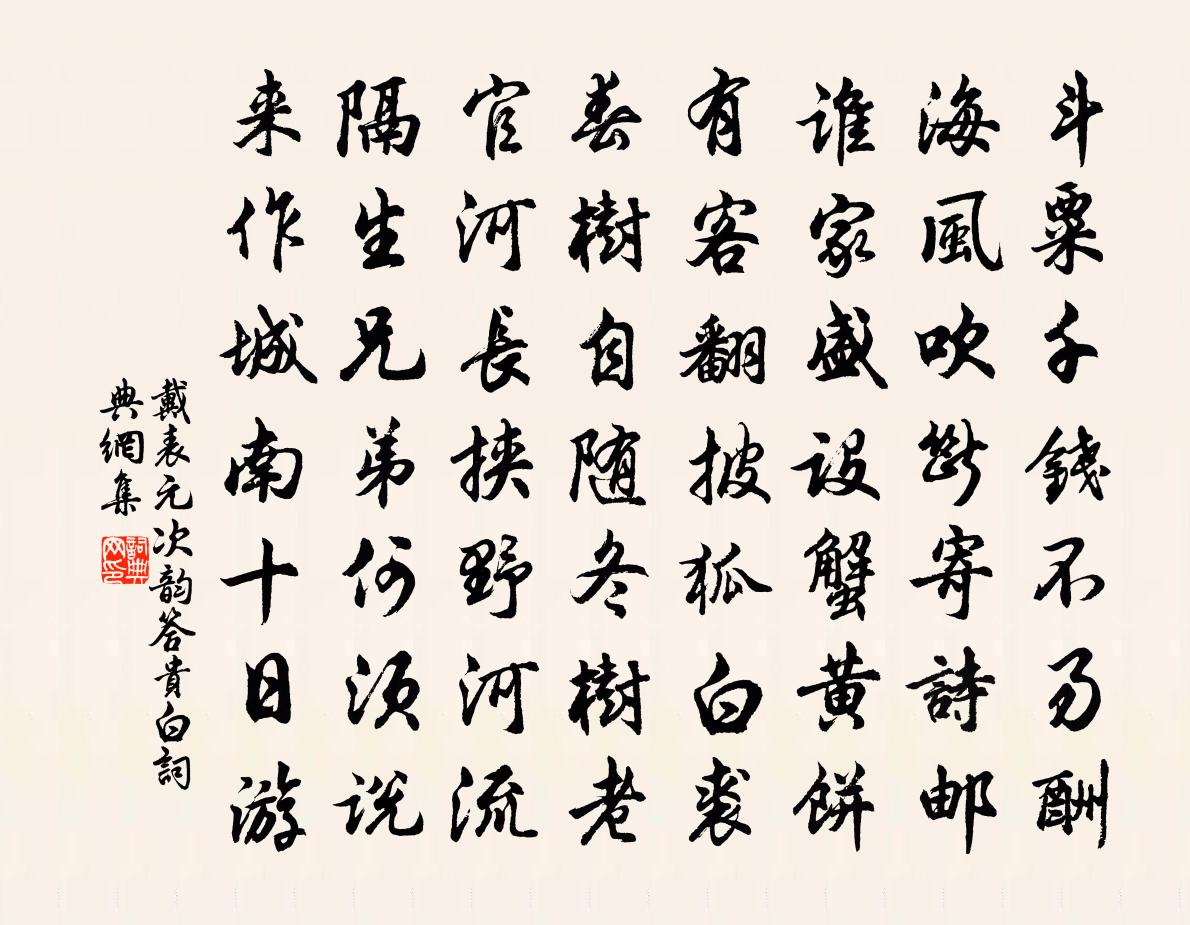 斗粟千錢不易酬
海風吹斷寄詩邮
誰家盛設蟹黄餅
有客翻披狐白裘
春樹自随冬樹老
官河長挟野河流
隔生兄弟何須説
来作城南十日游
戴表元次韵答貴白詞
典網集
詞典網印